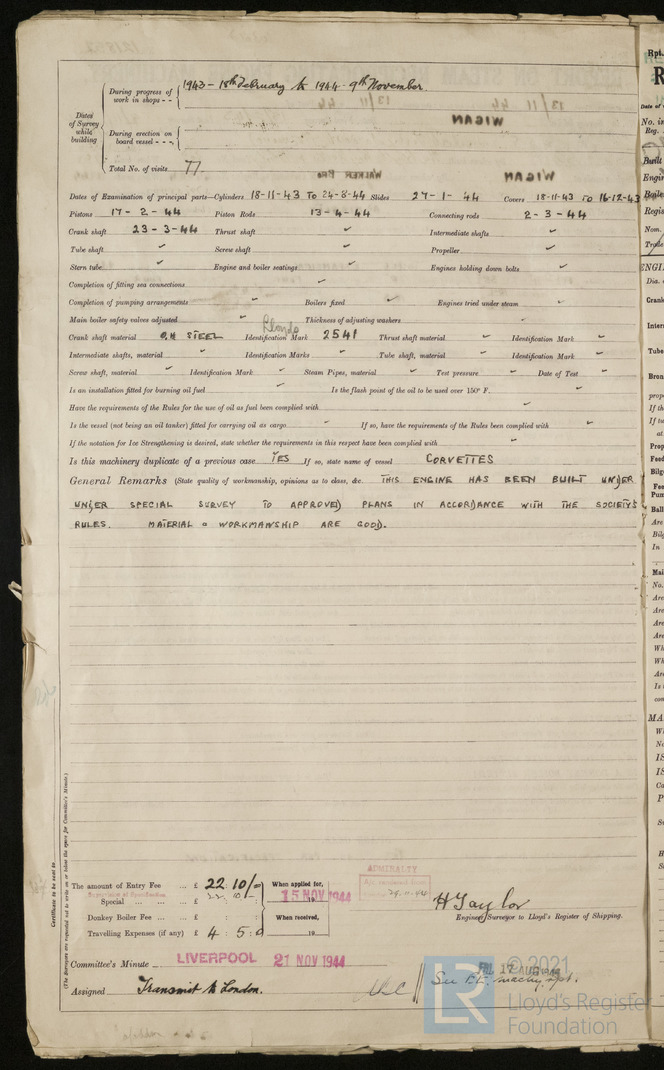 During progress of work in shops - - 1943 - 18th February to 1944 - 9th November.
Dates of Survey while building
During erection on board vessel - - -
WIGAN
Total No. of visits 77.
WALKER BRO WIGAN
Dates of Examination of principal parts—Cylinders 18-11-43 TO 24-8-44 Slides 27-1-44 Covers 18-11-43 TO 16-12-43
Pistons 17-2-44 Piston Rods 13-4-44 Connecting rods 2-3-44
Crank shaft 23-3-44 Thrust shaft ✓ Intermediate shafts ✓
Tube shaft ✓ Screw shaft ✓ Propeller ✓
Stern tube ✓ Engine and boiler seatings ✓ Engines holding down bolts ✓
Completion of fitting sea connections ✓
Completion of pumping arrangements ✓ Boilers fixed ✓ Engines tried under steam ✓
Main boiler safety valves adjusted ✓ Thickness of adjusting washers ✓
Crank shaft material O.H STEEL Identification Mark Lloyds 2541 Thrust shaft material ✓ Identification Mark ✓
Intermediate shafts, material ✓ Identification Marks ✓ Tube shaft, material ✓ Identification Mark ✓
Screw shaft, material ✓ Identification Mark ✓ Steam Pipes, material ✓ Test pressure ✓ Date of Test ✓
Is an installation fitted for burning oil fuel ✓ Is the flash point of the oil to be used over 150° F. ✓
Have the requirements of the Rules for the use of oil as fuel been complied with ✓
Is the vessel (not being an oil tanker) fitted for carrying oil as cargo ✓ If so, have the requirements of the Rules been complied with ✓
If the notation for Ice Strengthening is desired, state whether the requirements in this respect have been complied with ✓
Is this machinery duplicate of a previous case YES If so, state name of vessel CORVETTES
General Remarks (State quality of workmanship, opinions as to class, &c. THIS ENGINE HAS BEEN BUILT UNDER
UNDER SPECIAL SURVEY TO APPROVED PLANS IN ACCORDANCE WITH THE SOCIETYS
RULES. MATERIAL & WORKMANSHIP ARE GOOD.
Certificate to be sent to
(The Surveyors are requested not to write on or below the space for Committee's Minute.)
The amount of Entry Fee ... £ 22 : 10/- When applied for,
Special ... ... £ 22 : 10/- 15 NOV 1944
Donkey Boiler Fee ... £ : : When received,
Travelling Expenses (if any) £ 4 : 5 : 0 19
ADMIRALTY
H Taylor
Engineer Surveyor to Lloyd's Register of Shipping.
Committee's Minute LIVERPOOL 21 NOV 1944
FRI. 17 AUG 1945
Assigned Transmit to London.
See F.E. machy. rpt.
© 2021
LR
Lloyd's Register
Foundation